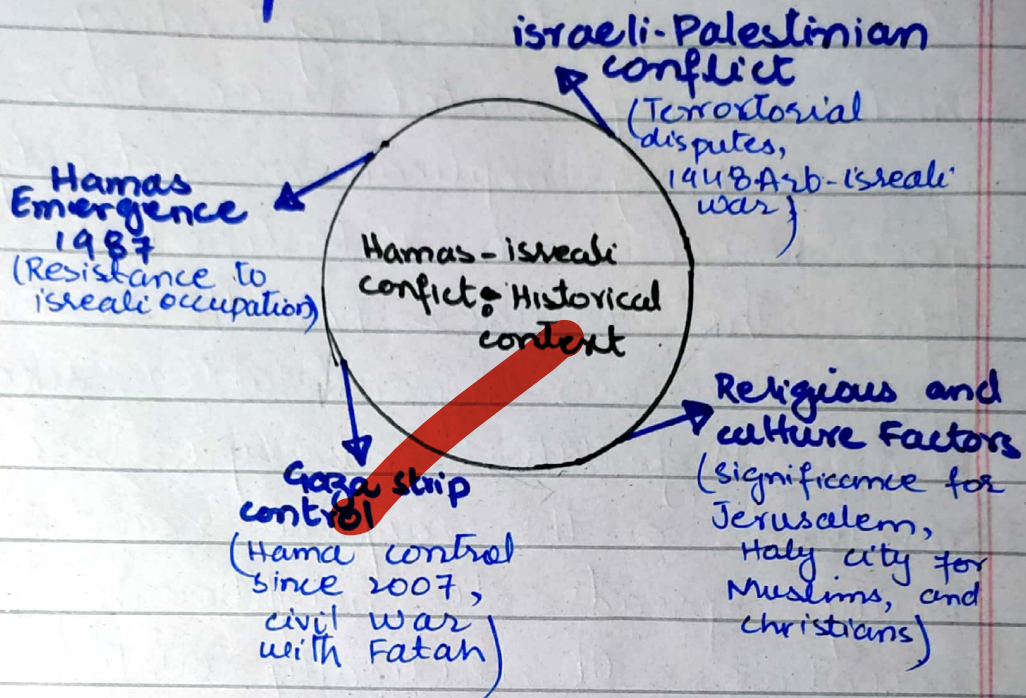 israeli-Palestinian
conflict
(Terrortorial
disputes,
1948 Arb-isreali
war)
Hamas
Emergence
1987
(Resistance to
isreali occupation)
Hamas - isreali
confict: Historical
context
Religious and
culture Factors
(significance for
Jerusalem,
Haly city for
Muslims, and
christians)
Gaza strip
control
(Hama control
since 2007,
civil war
with Fatah)